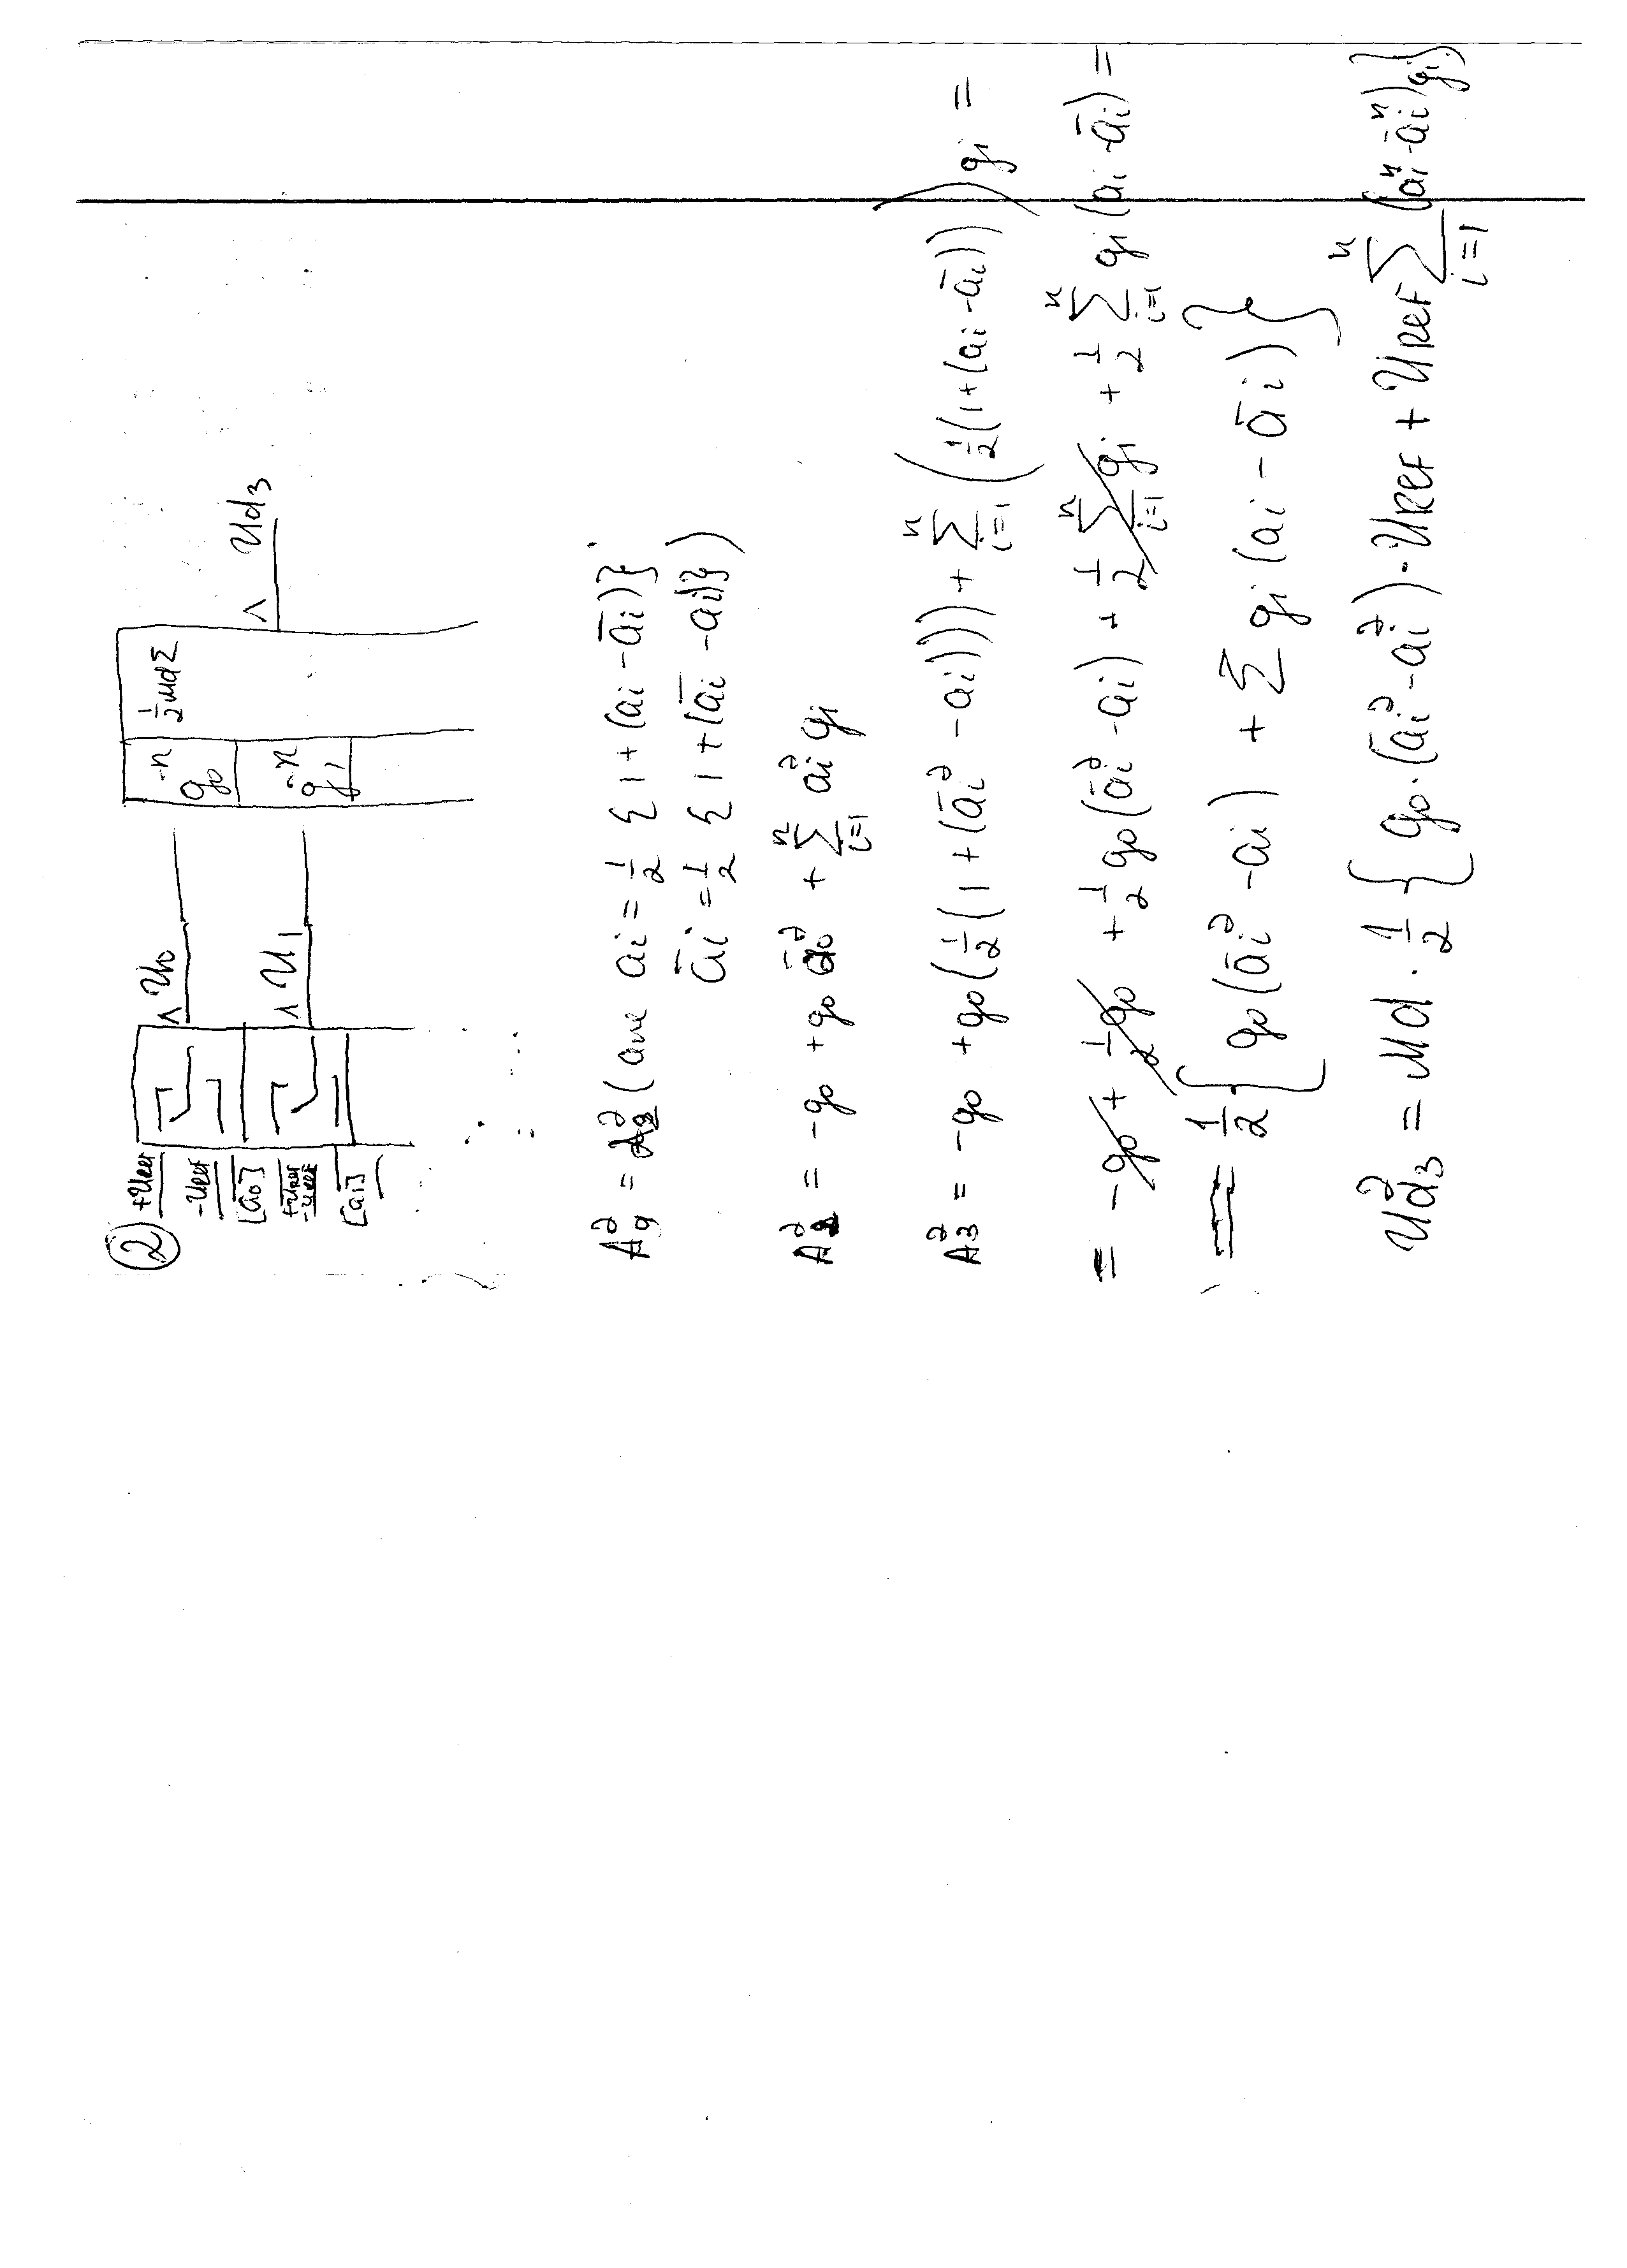 ②
+UREF
-UREF
[ā0]
+UREF
-UREF
[a1]
^ U0
^ U1
g0^-n
g1^-n
½ MdΣ
^ Ud3
A^∂_g = A^∂_g (или ai = ½ { 1 + (ai - āi)}
āi = ½ { 1 + (āi - ai)} )
A^∂_3 = -g0 + g0 ā0^∂ + Σ_{i=1}^{n} ai^∂ gi
A^∂_3 = -g0 + g0 (½ (1 + (āi^∂ - ai)))) + Σ_{i=1}^{n} (½ (1 + (ai - āi))) gi =
= -g0 + ½ g0 + ½ g0 (āi^∂ - ai) + ½ Σ_{i=1}^{n} gi + ½ Σ_{i=1}^{n} gi (ai - āi) =
= ½ { g0 (āi^∂ - ai) + Σ gi (ai - āi) }
Ud3^∂ = Md · ½ { g0 · (āi^∂ - ai^∂) · UREF + UREF Σ_{i=1}^{n} (ai^n - āi^n) gi }